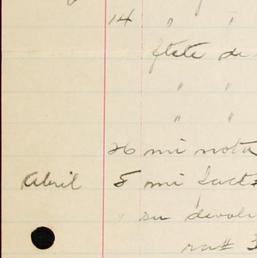 14 " "
flete de
" "
" "
26 mi nota
Abril 8 mi fact
" su devol